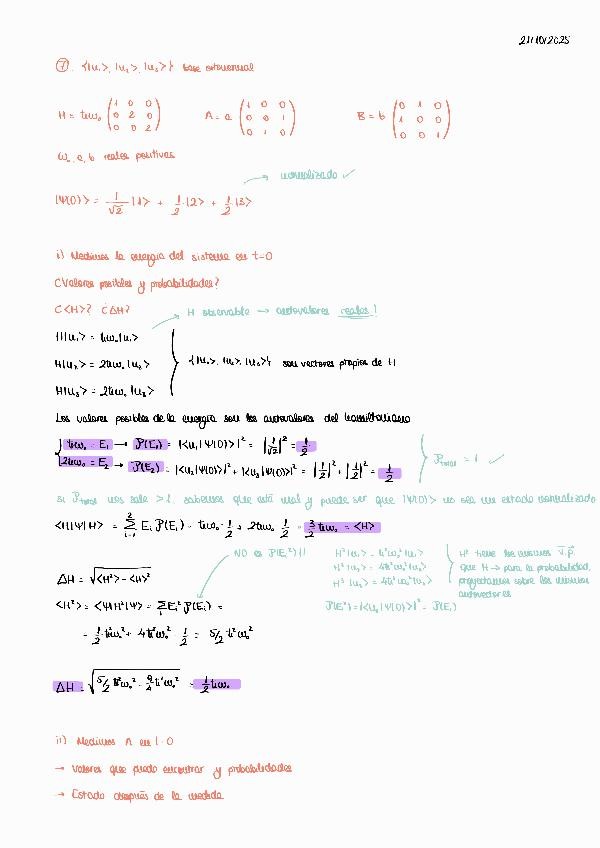 21/10/2025
⑦. {|u₁>, |u₂>, |u₃>} base ortonormal
H = ħω₀ (1 0 0 / 0 2 0 / 0 0 2)   A = a (1 0 0 / 0 0 1 / 0 1 0)   B = b (0 1 0 / 1 0 0 / 0 0 1)
ω₀, a, b reales positivas
→ normalizado ✓
|Ψ(0)> = 1/√2 |1> + 1/2 |2> + 1/2 |3>
i) Medimos la energía del sistema en t=0
¿Valores posibles y probabilidades?
¿<H>? ¿ΔH?   → H observable → autovalores reales!
H|u₁> = ħω₀|u₁>
H|u₂> = 2ħω₀|u₂>   {|u₁>, |u₂>, |u₃>} son vectores propios de H
H|u₃> = 2ħω₀|u₃>
Los valores posibles de la energía son los autovalores del hamiltoniano
ħω₀ = E₁ → P(E₁) = |<u₁|Ψ(0)>|² = |1/√2|² = 1/2
2ħω₀ = E₂ → P(E₂) = |<u₂|Ψ(0)>|² + |<u₃|Ψ(0)>|² = |1/2|² + |1/2|² = 1/2   P_total = 1 ✓
si P_total nos sale > 1. sabemos que está mal y puede ser que |Ψ(0)> no sea un estado normalizado
<H|Ψ|H> = Σ_{i=1}^{2} Eᵢ P(Eᵢ) = ħω₀ · 1/2 + 2ħω₀ · 1/2 = 3/2 ħω₀ = <H>
NO es P(Eᵢ²)!!
H²|u₁> = ħ²ω₀²|u₁>
H²|u₂> = 4ħ²ω₀²|u₂>
H²|u₃> = 4ħ²ω₀²|u₃>
H² tiene los mismos v.p
que H → para la probabilidad,
proyectamos sobre los mismos
autovectores
P(E₁²) = |<u₁|Ψ(0)>|² = P(E₁)
ΔH = √(<H²> - <H>²)
<H²> = <Ψ|H²|Ψ> = Σ Eᵢ² P(Eᵢ) =
= 1/2 · ħ²ω₀² + 4ħ²ω₀² · 1/2 = 5/2 ħ²ω₀²
ΔH = √(5/2 ħ²ω₀² - 9/4 ħ²ω₀²) = 1/2 ħω₀
ii) Medimos A en t=0
→ Valores que puedo encontrar y probabilidades
→ Estado después de la medida